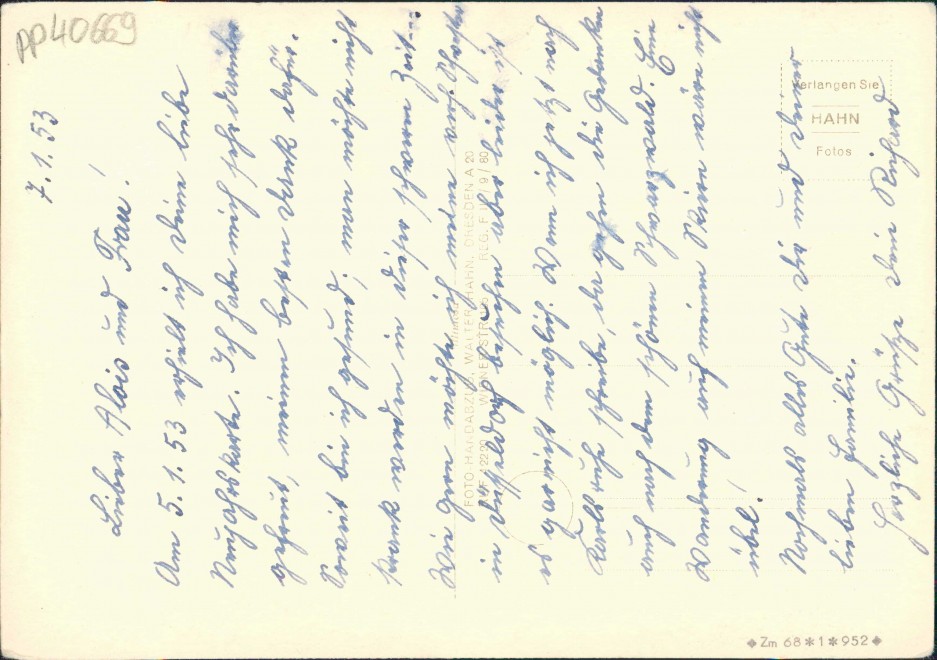 PP40669
7.1.53
Lieber Alois und Frau!
Am 5.1.53 erhielt ich Deine liebe
Neujahrskarte. Ich habe mich sehr darüber
gefreut, meinen besten Dank dafür.
Soweit bin ich gesund, man möchte nicht
krank werden in dieser schweren Zeit.
Wie gern möchte ich meine
in Düsseldorf besuchen aber leider ist
es gar nicht möglich. Wenn ich jetzt nach
Karlsruhe schreibe, da gehen die Gedanken
auch nach dem schönen Schwarzwald. Eine
Wanderung nach meinem wäre nicht
übel!
Nochmals alles Gute Dir und Deiner
lieben Familie.
Herzliche Grüße Dein Richard
Verlangen Sie
HAHN
Fotos
FOTO HANDABZUG WALTER HAHN, DRESDEN A 20
REG. F
Zm 68*1*952